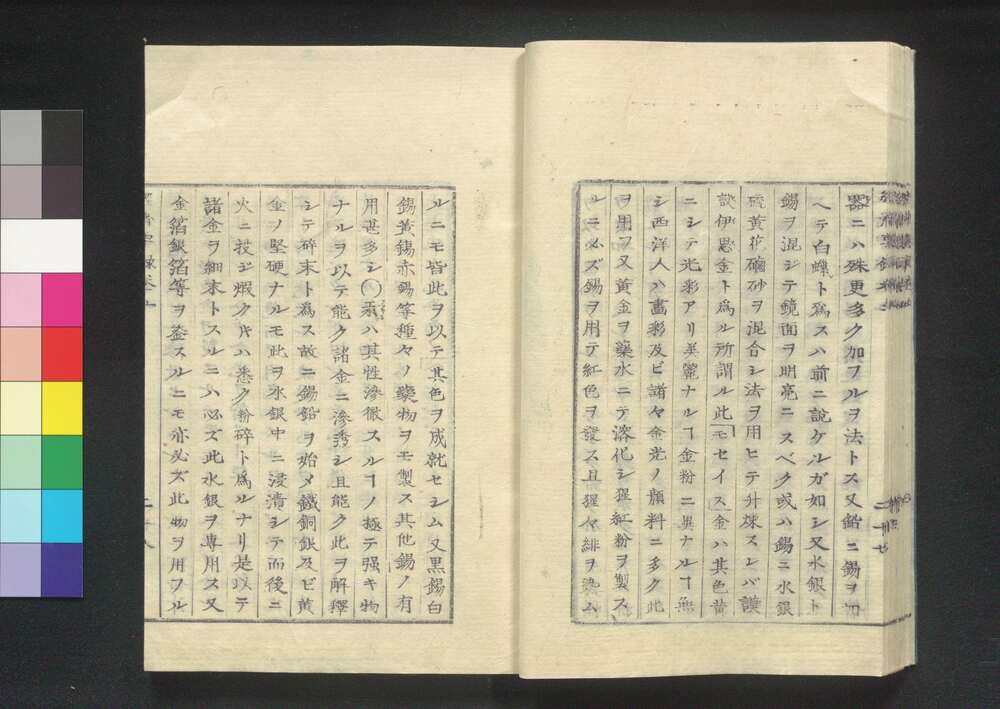 器ニハ殊更多ク加フルヲ法トス又鉛ニ錫ヲ加
ヘテ白鑞ト爲スハ前ニ說ケルガ如シ又水銀ト
錫ヲ混ジテ鏡面ヲ明亮ニスベク或ハ錫ニ水銀
硫黄花磠砂ヲ混合シ法ヲ用ヒテ升煉スレバ
伊恩金ト爲ル所謂ル此「モセイス」金ハ其色黄
ニシテ光彩アリ美麗ナルヿ金粉ニ異ナルヿ無
シ西洋人ハ畫彩及ビ諸々金光ノ顏料ニ多ク此
ヲ用フ又黄金ヲ藥水ニテ溶化シ猩紅粉ヲ製ス
ルニ必ズ錫ヲ用テ紅色ヲ發ス且猩々緋ヲ染ム
ルニモ皆此ヲ以テ其色ヲ成就セシム又黒錫白
錫黄錫赤錫等種々ノ藥物ヲモ製ス其他錫ノ有
用甚多シ○汞ハ其性滲徹スルヿノ極テ强キ物
ナルヲ以テ能ク諸金ニ滲透シ且能ク此ヲ解釋
シテ碎末ト爲ス故ニ錫鉛ヲ始メ鐵銅銀及ビ黄
金ノ堅硬ナルモ此ヲ水銀中ニ浸漬シテ而後ニ
火ニ投ジ煆クトキハ悉ク粉碎ト爲ルナリ是以テ
諸金ヲ細末トスルニハ必ズ此水銀ヲ専用ス又
金箔銀箔等ヲ釜スルニモ亦必ズ此物ヲ用フル